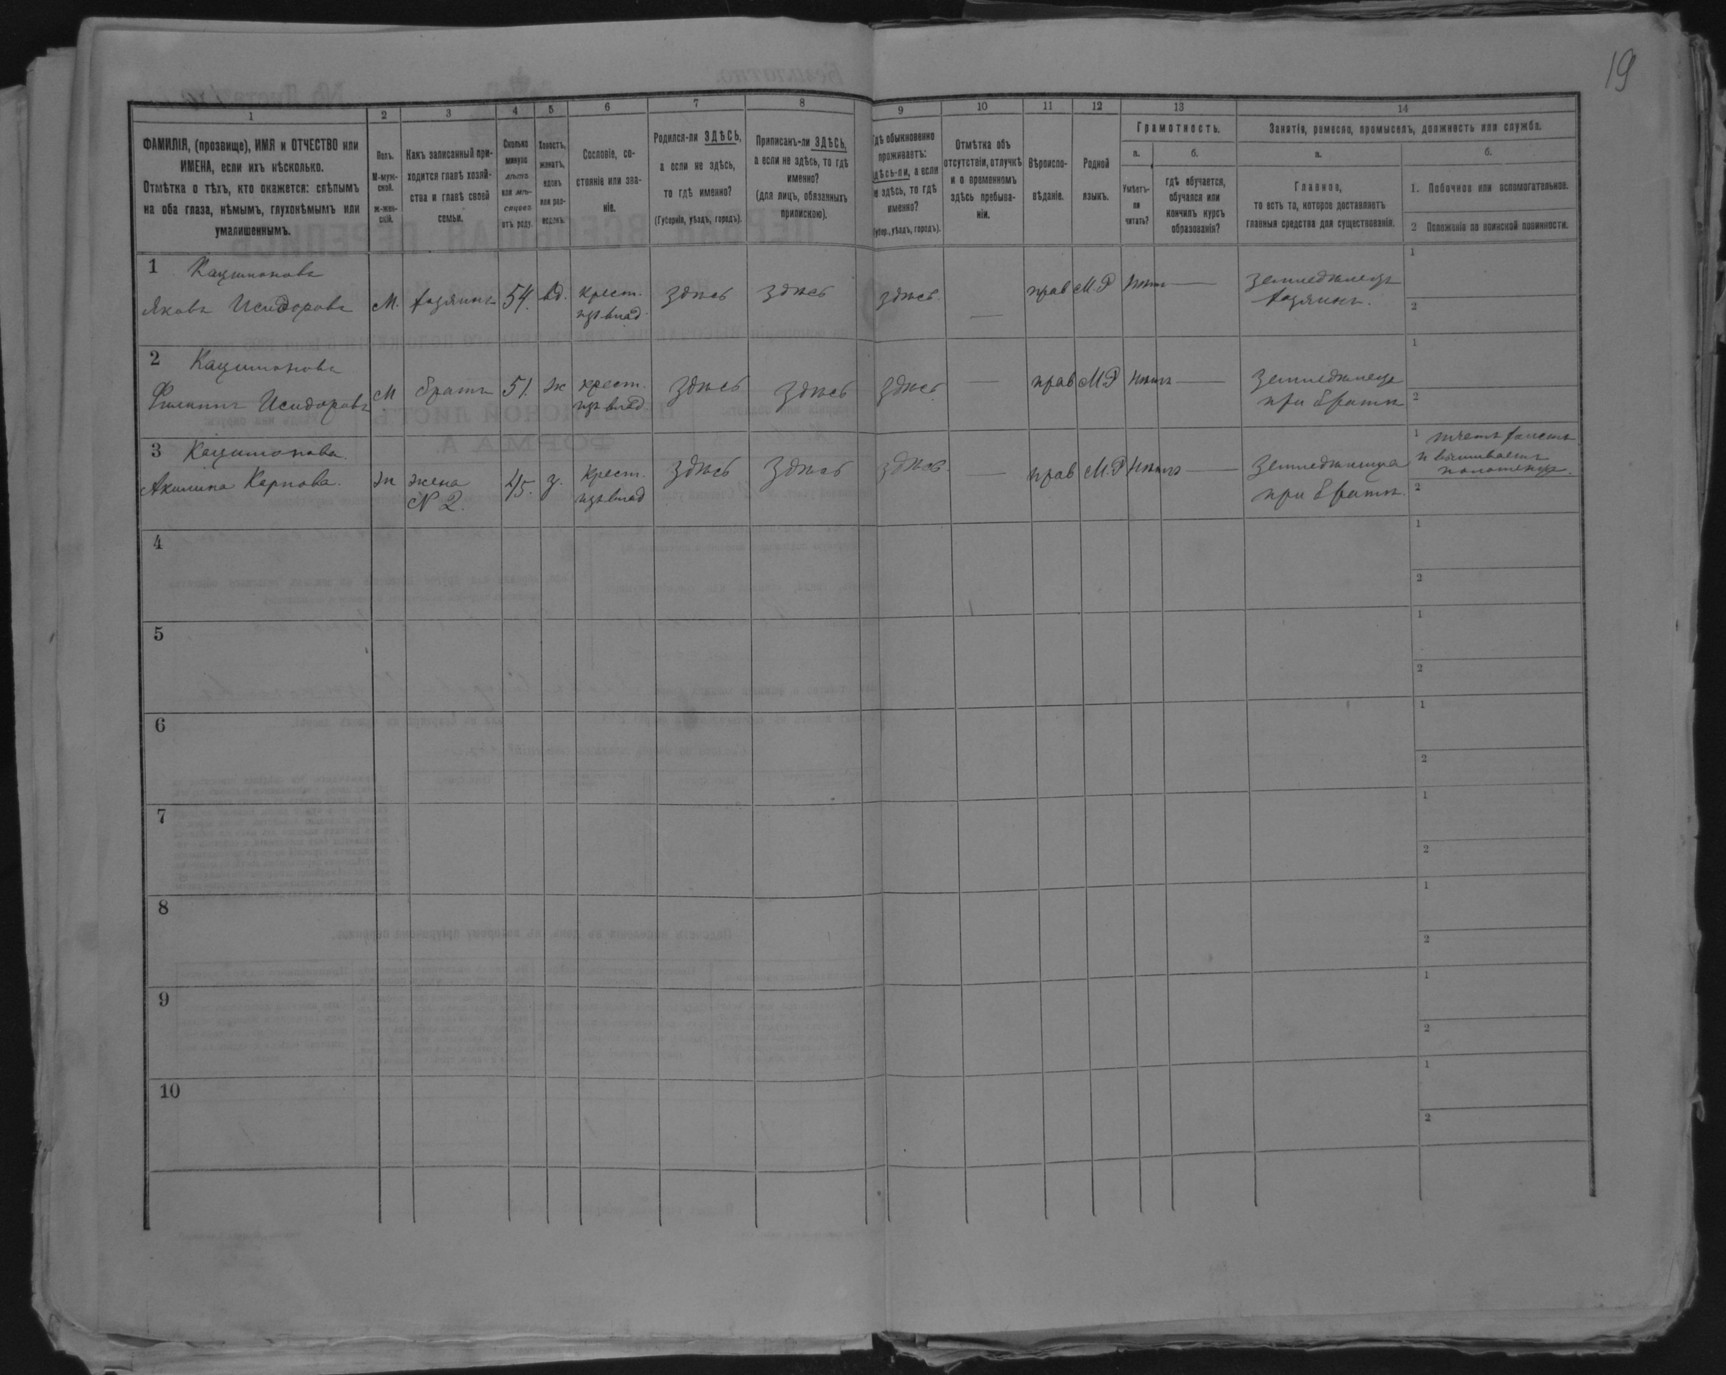 19
1 2 3 4 5 6 7 8 9 10 11 12 13 14
ФАМИЛІЯ, (прозвище), ИМЯ и ОТЧЕСТВО или
ИМЕНА, если ихъ нѣсколько.
Отмѣтка о тѣхъ, кто окажется: слѣпымъ
на оба глаза, нѣмымъ, глухонѣмымъ или
умалишеннымъ.
Полъ.
М-муж-
ской.
ж-жен-
скій.
Какъ записанный при-
ходится главѣ хозяй-
ства и главѣ своей
семьи.
Сколько
минуло
лѣтъ
или мѣ-
сяцевъ
отъ роду.
Холостъ,
женатъ,
вдовъ
или раз-
веденъ.
Сословіе, со-
стояніе или зва-
ніе.
Родился-ли ЗДѢСЬ,
а если не здѣсь,
то гдѣ именно?
(Губернія, уѣздъ, городъ).
Приписанъ-ли ЗДѢСЬ,
а если не здѣсь, то гдѣ
именно?
(для лицъ, обязанныхъ
припискою).
Гдѣ обыкновенно
проживаетъ:
здѣсь-ли, а если
не здѣсь, то гдѣ
именно?
(Губер., уѣздъ, городъ).
Отмѣтка объ
отсутствіи, отлучкѣ
и о временномъ
здѣсь пребыва-
ніи.
Вѣроиспо-
вѣданіе.
Родной
языкъ.
Грамотность.
а.
Умѣетъ-
ли
читать?
б.
гдѣ обучается,
обучался или
кончилъ курсъ
образованія?
Занятія, ремесло, промыселъ, должность или служба.
а.
Главное,
то есть то, которое доставляетъ
главныя средства для существованія.
б.
1. Побочное или вспомогательное.
2 Положеніе по воинской повинности.
1 Кацимоновъ
Яковъ Исидоровъ М. хозяинъ 54. вд. крест. изъ влад. здѣсь здѣсь здѣсь — прав М.Р нѣтъ — земледѣлецъ хозяинъ. 1 2
2 Кацимоновъ
Филиппъ Исидоровъ М братъ 51. ж крест. изъ влад здѣсь здѣсь здѣсь — прав М.Р нѣтъ — земледѣлецъ при братѣ 1 2
3 Кацимонова.
Акилина Карпова. ж жена № 2. 45. з. крест. изъ влад здѣсь здѣсь здѣсь — прав М.Р нѣтъ — земледѣлица при братѣ. 1 ткетъ холстъ и вышиваетъ полотенца. 2
4 1 2
5 1 2
6 1 2
7 1 2
8 1 2
9 1 2
10 1 2